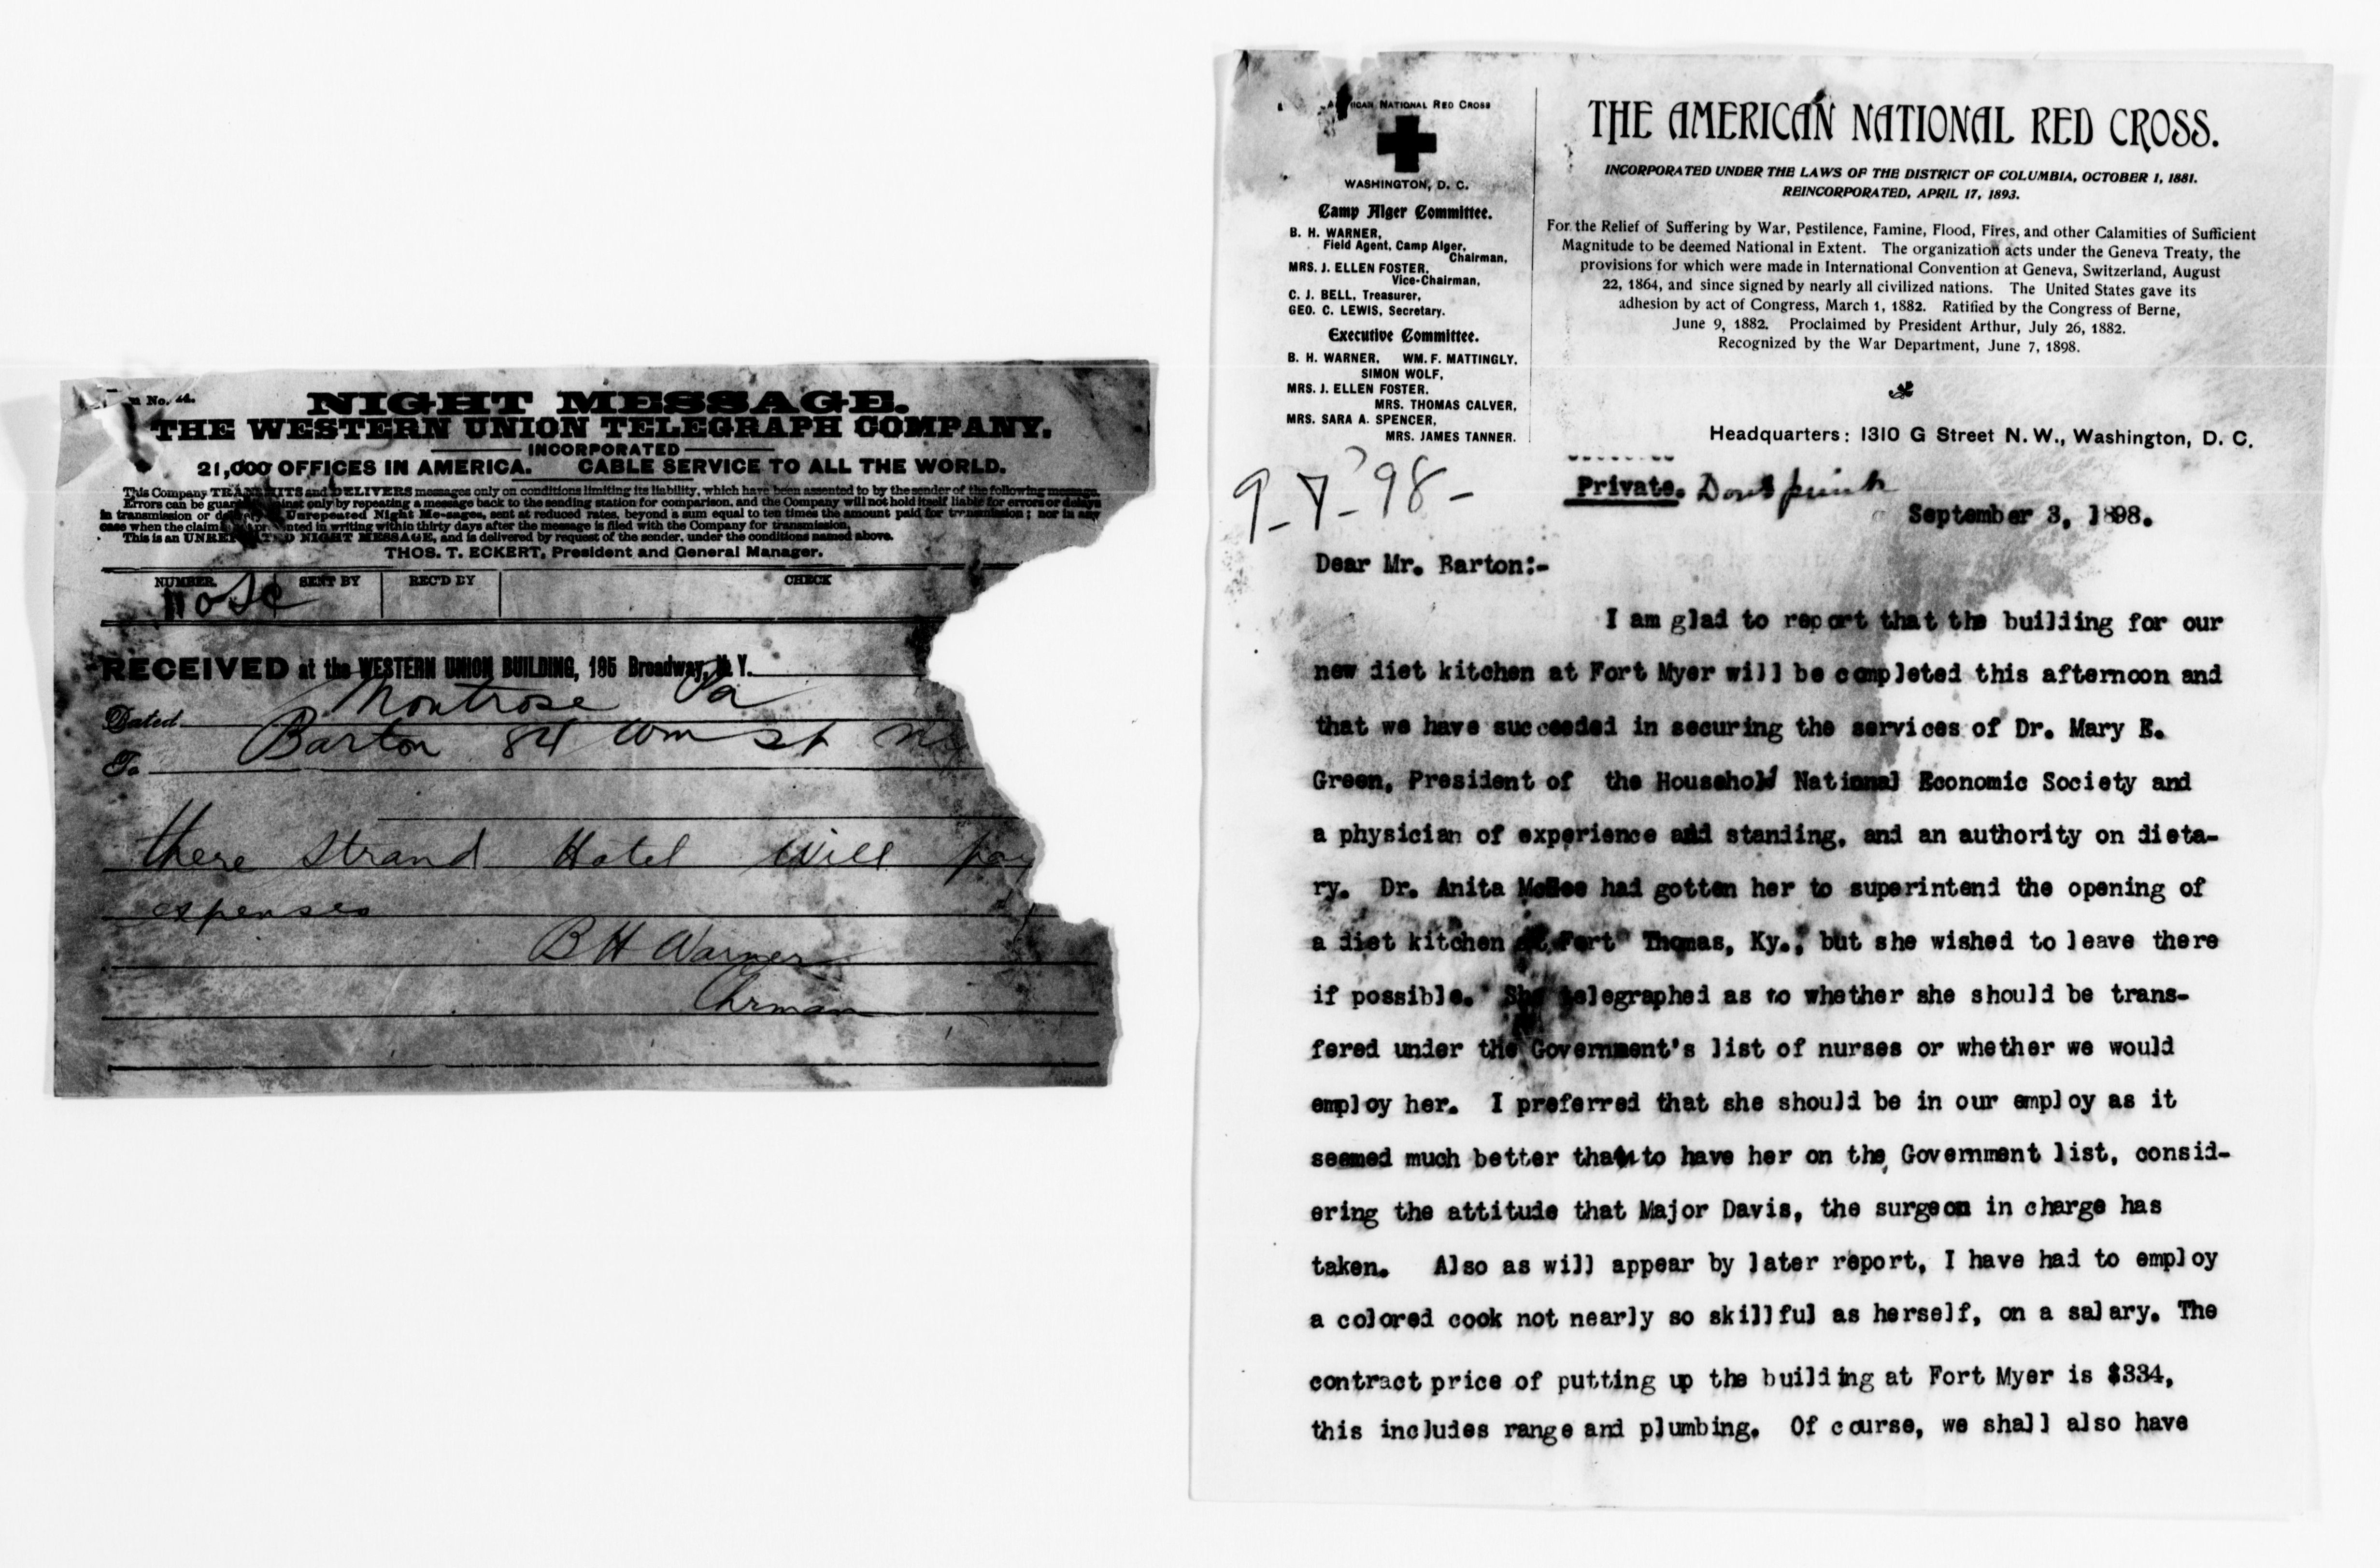 No.
NIGHT MESSAGE.
THE WESTERN UNION TELEGRAPH COMPANY.
INCORPORATED
21,000 OFFICES IN AMERICA. CABLE SERVICE TO ALL THE WORLD.
This Company TRANSMITS and DELIVERS messages only on conditions limiting its liability, which have been assented to by the sender of the following message.
Errors can be guarded against only by repeating a message back to the sending station for comparison, and the Company will not hold itself liable for errors or delays
in transmission or delivery of Unrepeated Night Messages, sent at reduced rates, beyond a sum equal to ten times the amount paid for transmission; nor in any
case when the claim is not presented in writing within thirty days after the message is filed with the Company for transmission.
This is an UNREPEATED NIGHT MESSAGE, and is delivered by request of the sender, under the conditions named above.
THOS. T. ECKERT, President and General Manager.
NUMBER SENT BY REC'D BY CHECK
RECEIVED at the WESTERN UNION BUILDING, 195 Broadway, N. Y.
Dated Montrose Pa
To Barton 84 Wm st
there Strand Hotel will pay
expenses
B H Warner
Chrman
AMERICAN NATIONAL RED CROSS
WASHINGTON, D. C.
Camp Alger Committee.
B. H. WARNER,
Field Agent, Camp Alger,
Chairman,
MRS. J. ELLEN FOSTER,
Vice-Chairman,
C. J. BELL, Treasurer,
GEO. C. LEWIS, Secretary.
Executive Committee.
B. H. WARNER, WM. F. MATTINGLY,
SIMON WOLF,
MRS. J. ELLEN FOSTER,
MRS. THOMAS CALVER,
MRS. SARA A. SPENCER,
MRS. JAMES TANNER.
THE AMERICAN NATIONAL RED CROSS.
INCORPORATED UNDER THE LAWS OF THE DISTRICT OF COLUMBIA, OCTOBER 1, 1881.
REINCORPORATED, APRIL 17, 1893.
For the Relief of Suffering by War, Pestilence, Famine, Flood, Fires, and other Calamities of Sufficient
Magnitude to be deemed National in Extent. The organization acts under the Geneva Treaty, the
provisions for which were made in International Convention at Geneva, Switzerland, August
22, 1864, and since signed by nearly all civilized nations. The United States gave its
adhesion by act of Congress, March 1, 1882. Ratified by the Congress of Berne,
June 9, 1882. Proclaimed by President Arthur, July 26, 1882.
Recognized by the War Department, June 7, 1898.
Headquarters: 1310 G Street N. W., Washington, D. C.
9-7-98-
Private. Dont print
September 3, 1898.
Dear Mr. Barton:-
I am glad to report that the building for our
new diet kitchen at Fort Myer will be completed this afternoon and
that we have succeeded in securing the services of Dr. Mary E.
Green, President of the Household National Economic Society and
a physician of experience and standing, and an authority on dieta-
ry. Dr. Anita McGee had gotten her to superintend the opening of
a diet kitchen at Fort Thomas, Ky., but she wished to leave there
if possible. She telegraphed as to whether she should be trans-
fered under the Government's list of nurses or whether we would
employ her. I preferred that she should be in our employ as it
seemed much better than to have her on the Government list, consid-
ering the attitude that Major Davis, the surgeon in charge has
taken. Also as will appear by later report, I have had to employ
a colored cook not nearly so skillful as herself, on a salary. The
contract price of putting up the building at Fort Myer is $334,
this includes range and plumbing. Of course, we shall also have